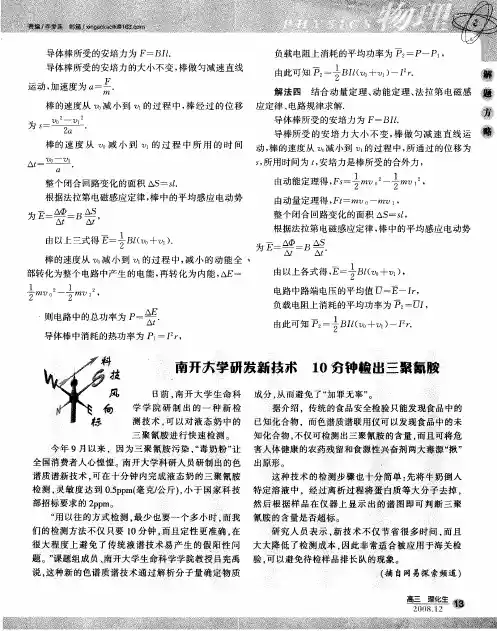 责编/李梦莲 邮箱/xingaokaolk@163.com
PHYSICS 物理
导体棒所受的安培力为 F=BIl.
导体棒所受的安培力的大小不变,棒做匀减速直线
运动,加速度为 a=F/m.
棒的速度从 v₀ 减小到 v₁ 的过程中,棒经过的位移
为 s=(v₀²-v₁²)/2a.
棒的速度从 v₀ 减小到 v₁ 的过程中所用的时间
Δt=(v₀-v₁)/a.
整个闭合回路变化的面积 ΔS=sl.
根据法拉第电磁感应定律,棒中的平均感应电动势
为 E̅=ΔΦ/Δt=BΔS/Δt.
由以上三式得 E̅=½Bl(v₀+v₁).
棒的速度从 v₀ 减小到 v₁ 的过程中,减小的动能全
部转化为整个电路中产生的电能,再转化为内能,ΔE=
½mv₀²-½mv₁²,
则电路中的总功率为 P=ΔE/Δt.
导体棒中消耗的热功率为 P₁=I²r,
负载电阻上消耗的平均功率为 P̅₂=P-P₁,
由此可知 P̅₂=½BIl(v₀+v₁)-I²r.
解法四 结合动量定理、动能定理、法拉第电磁感
应定律、电路规律求解.
导体棒所受的安培力为 F=BIl.
导棒所受的安培力大小不变,棒做匀减速直线运
动,棒的速度从 v₀ 减小到 v₁ 的过程中,所通过的位移为
s,所用时间为 t,安培力是棒所受的合外力,
由动能定理得,Fs=½mv₀²-½mv₁²,
由动量定理得,Ft=mv₀-mv₁,
整个闭合回路变化的面积 ΔS=sl,
根据法拉第电磁感应定律,棒中的平均感应电动势
为 E̅=ΔΦ/Δt=BΔS/Δt
由以上各式得,E̅=½Bl(v₀+v₁),
电路中路端电压的平均值 U̅=E̅-Ir,
负载电阻上消耗的平均功率为 P̅₂=U̅I,
由此可知 P̅₂=½BIl(v₀+v₁)-I²r.
解题方略
科技风向标
南开大学研发新技术 10分钟检出三聚氰胺
日前,南开大学生命科
学学院研制出的一种新检
测技术,可以对液态奶中的
三聚氰胺进行快速检测。
今年9月以来,因为三聚氰胺污染,“毒奶粉”让
全国消费者人心惶惶。南开大学科研人员研制出的色
谱质谱新技术,可在十分钟内完成液态奶的三聚氰胺
检测,灵敏度达到0.5ppm(毫克/公斤),小于国家科技
部招标要求的2ppm。
“用以往的方式检测,最少也要一个多小时,而我
们的检测方法不仅只要10分钟,而且定性更准确,在
很大程度上避免了传统液谱技术易产生的假阳性问
题。”课题组成员、南开大学生命科学学院教授吕宪禹
说,这种新的色谱质谱技术通过解析分子量确定物质
成分,从而避免了“加罪无辜”。
据介绍,传统的食品安全检验只能发现食品中的
已知化合物,而色谱质谱联用仪可以发现食品中的未
知化合物,不仅可检测出三聚氰胺的含量,而且可将危
害人体健康的农药残留和食源性兴奋剂两大毒源“揪”
出原形。
这种技术的检测步骤也十分简单:先将牛奶倒入
特定溶液中,经过离析过程将蛋白质等大分子去掉,
然后根据样品在仪器上显示出的谱图即可判断三聚
氰胺的含量是否超标。
研究人员表示,新技术不仅节省很多时间,而且
大大降低了检测成本,因此非常适合被应用于海关检
验,可以避免待检样品排长队的现象。
(摘自网易探索频道)
高三 理化生
2008.12 13